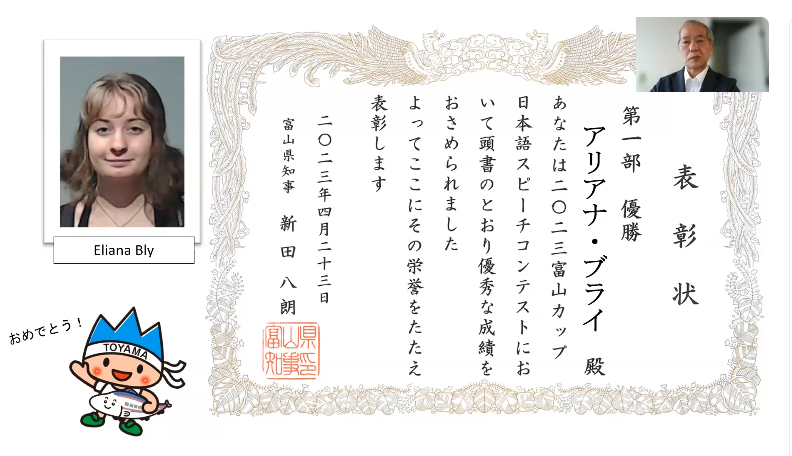 表彰状
第一部 優勝
アリアナ・ブライ 殿
あなたは二〇二三富山カップ
日本語スピーチコンテストにお
いて頭書のとおり優秀な成績を
おさめられました
よってここにその栄誉をたたえ
表彰します
二〇二三年四月二十三日
富山県知事 新田八朗
富山県知事印
Eliana Bly
おめでとう!
TOYAMA